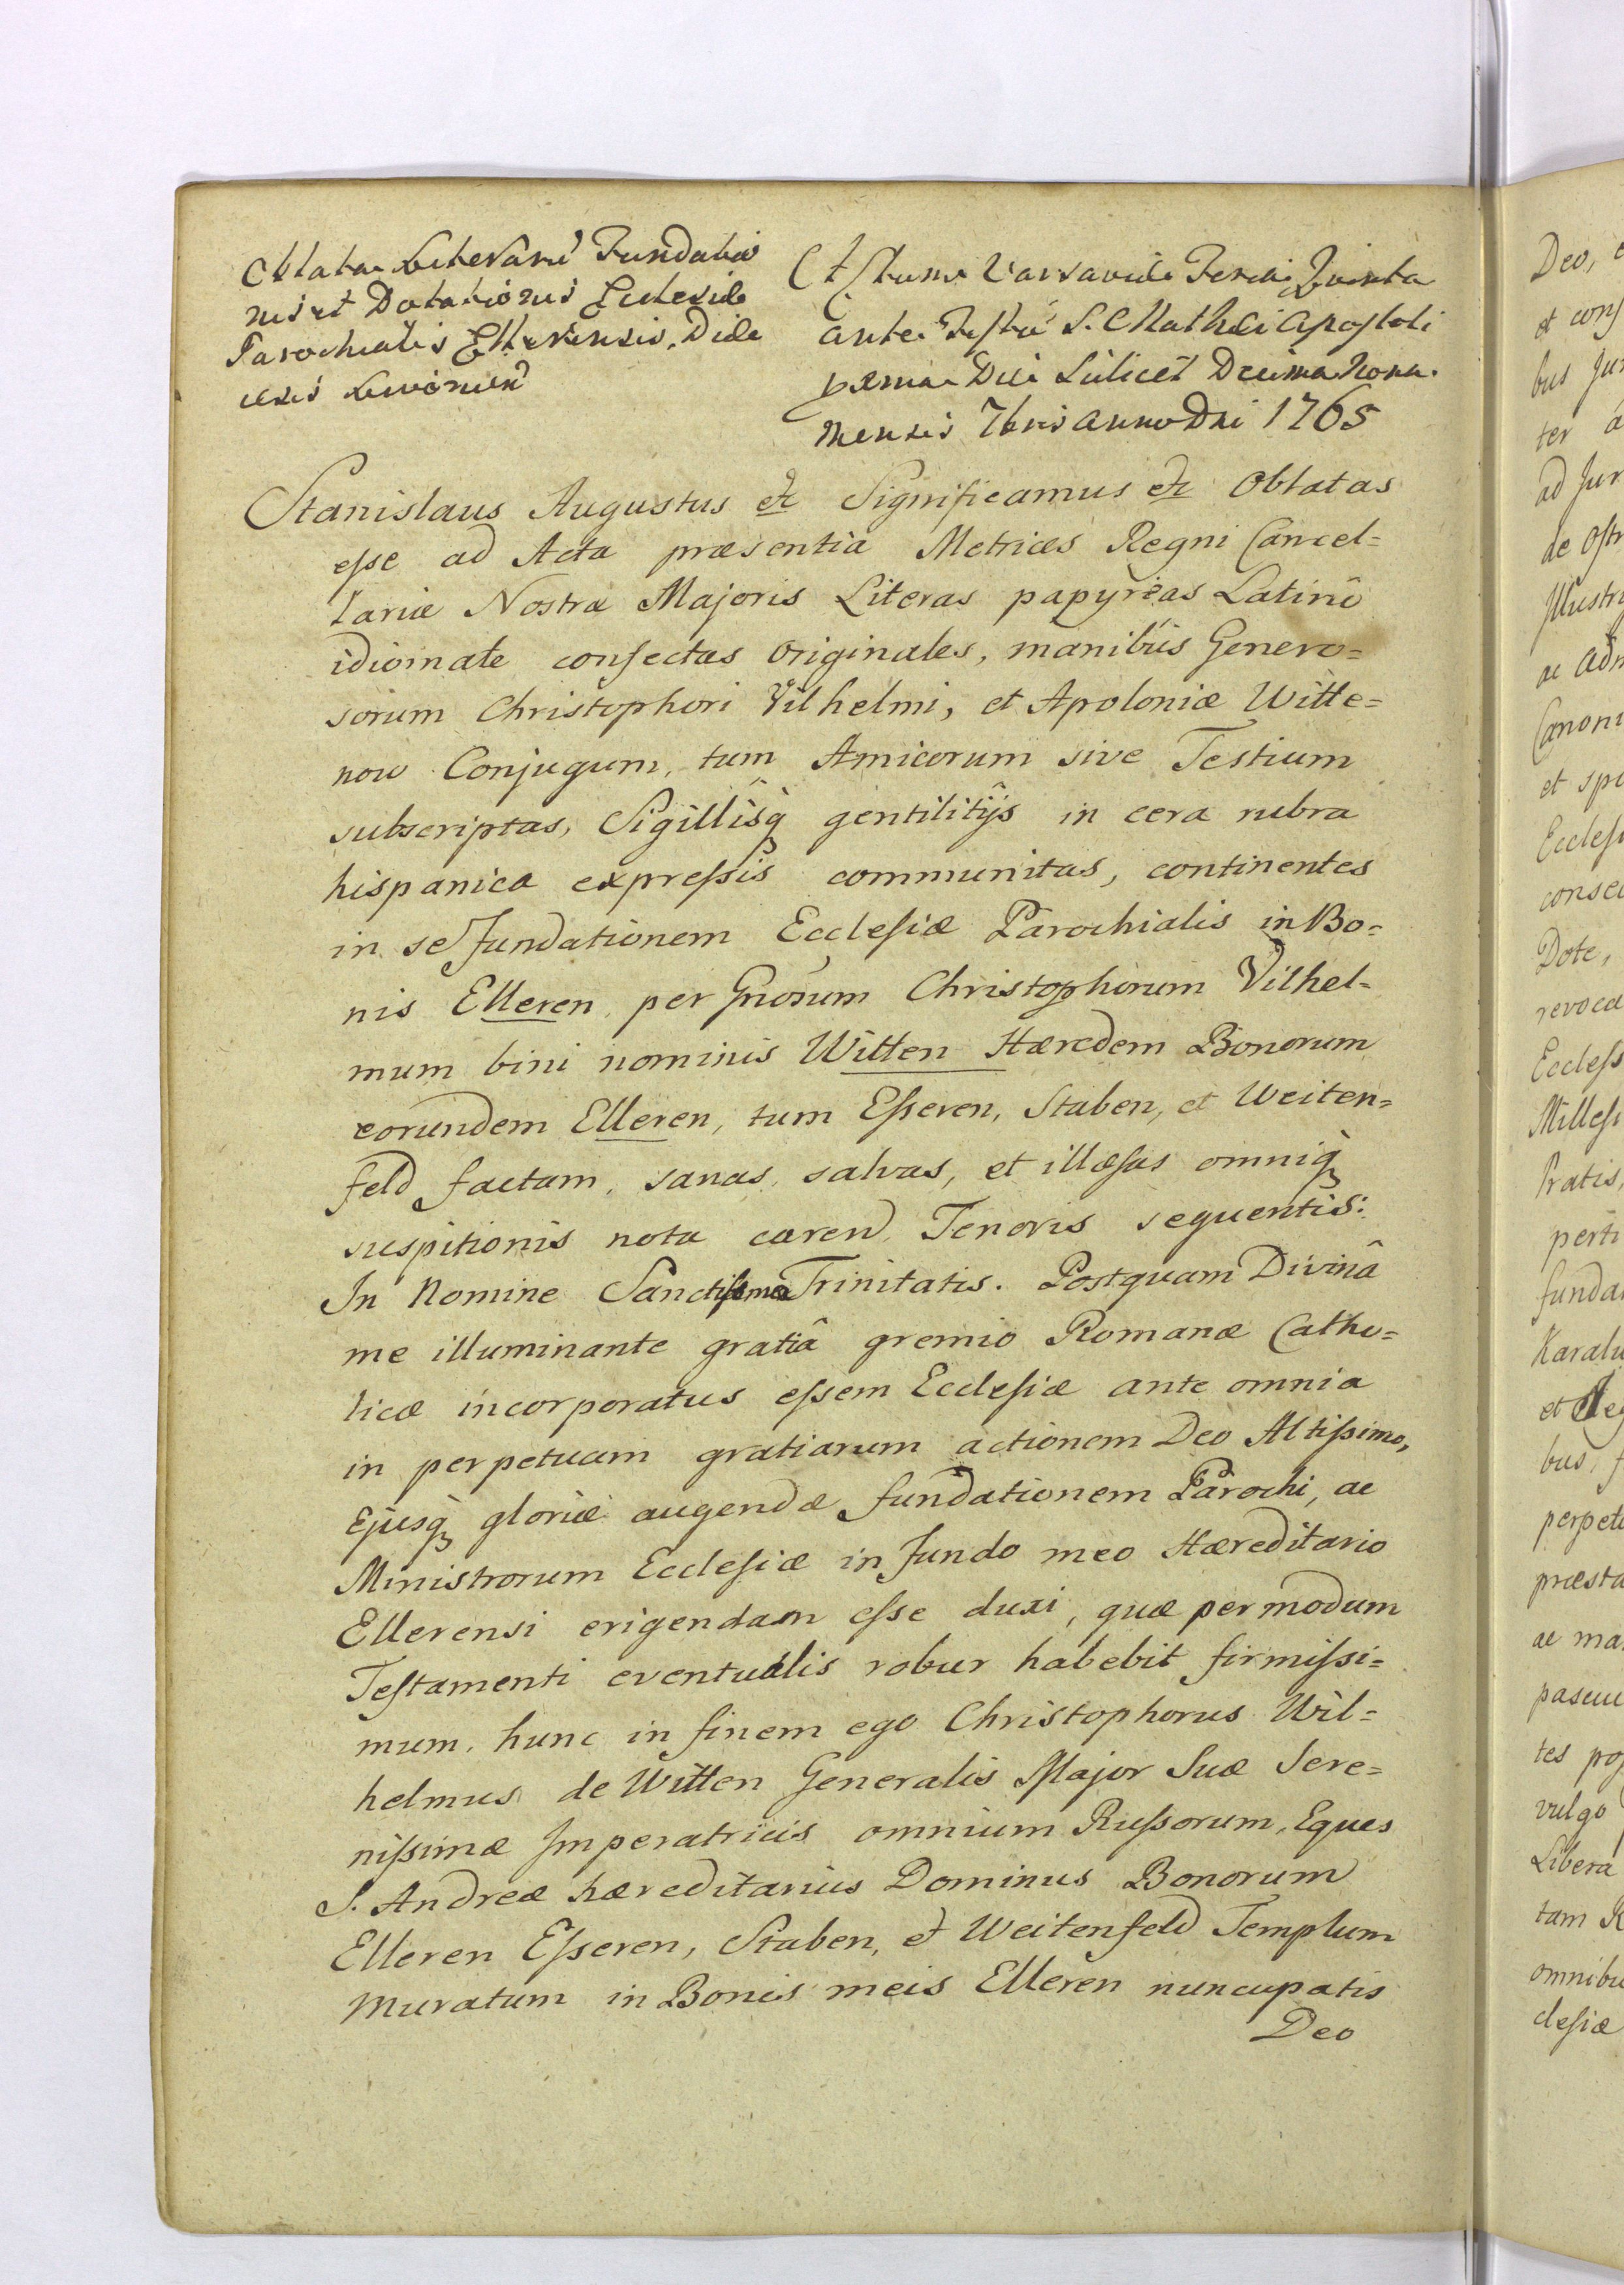 Oblata Literarū Fundatio
nis et Dotationis Ecclesiæ
Parochialis Ellerensis, Diæ
cesis Livonien
Actum Varsaviæ Feria Quinta
ante Festū S. Mathæi Apostoli
proxima Die Scilicet Decima Nona
Mensis 7bris Anno Dni 1765
Stanislaus Augustus etc Significamus etc Oblatas
eſse ad Acta præsentia Metrices Regni Cancel=
lariæ Nostræ Majoris Literas papyreas Latinô
idiomate confectas Originales, manibus Genero=
sorum Christophori Vilhelmi, et Apoloniæ Witte=
now Conjugum, tum Amicorum sive Testium
subscriptas, Sigillisq̀ gentilitijs in cera rubra
hispanica expreſsis communitas, continentes
in se fundationem Eccleſiæ Parochialis in Bo=
nis Elleren per Gnosum Christophorum Vilhel=
mum bini nominis Witten Hæredem Bonorum
eorundem Elleren, tum Eſseren, Staben, et Weiten=
feld factam, sanas, salvas, et illæſas omniq̀
suspitionis nota caren Tenoris sequentis:
In Nomine Sanctiſsmæ Trinitatis. Postquam Divinâ
me illuminante gratiâ gremio Romanæ Catho=
licæ incorporatus eſsem Eccleſiæ ante omnia
in perpetuam gratiarum actionem Deo Altiſsimo,
Ejusq̀ gloriæ augendæ fundationem Parochi, ac
Ministrorum Eccleſiæ in fundo meo Hæreditario
Ellerensi erigendam eſse duxi, quæ per modum
Teſtamenti eventualis robur habebit firmiſsi=
mum, hunc in finem ego Christophorus Wil=
helmus de Witten Generalis Major Suæ Sere=
niſsimæ Imperatricis omnium Ruſsorum, Eques
S. Andreæ hæreditarius Dominus Bonorum
Elleren Eſseren, Staben, et Weitenfeld Templum
Muratum in Bonis meis Elleren nuncupatis
Deo
Deo,
et conſ
bus
ter
ad Jur
de Oſtr
Illustr
ac Adm
Canoni
et spe
Eccleſi
consec
Dote,
revoca
Eccleſs
Milleſi
Pratis,
perti
fundat
Karalu
et
bus,
perpetu
præsta
ac ma
pascu
tes poſ
vulgo
Libera
tam
omnibu
cleſiæ